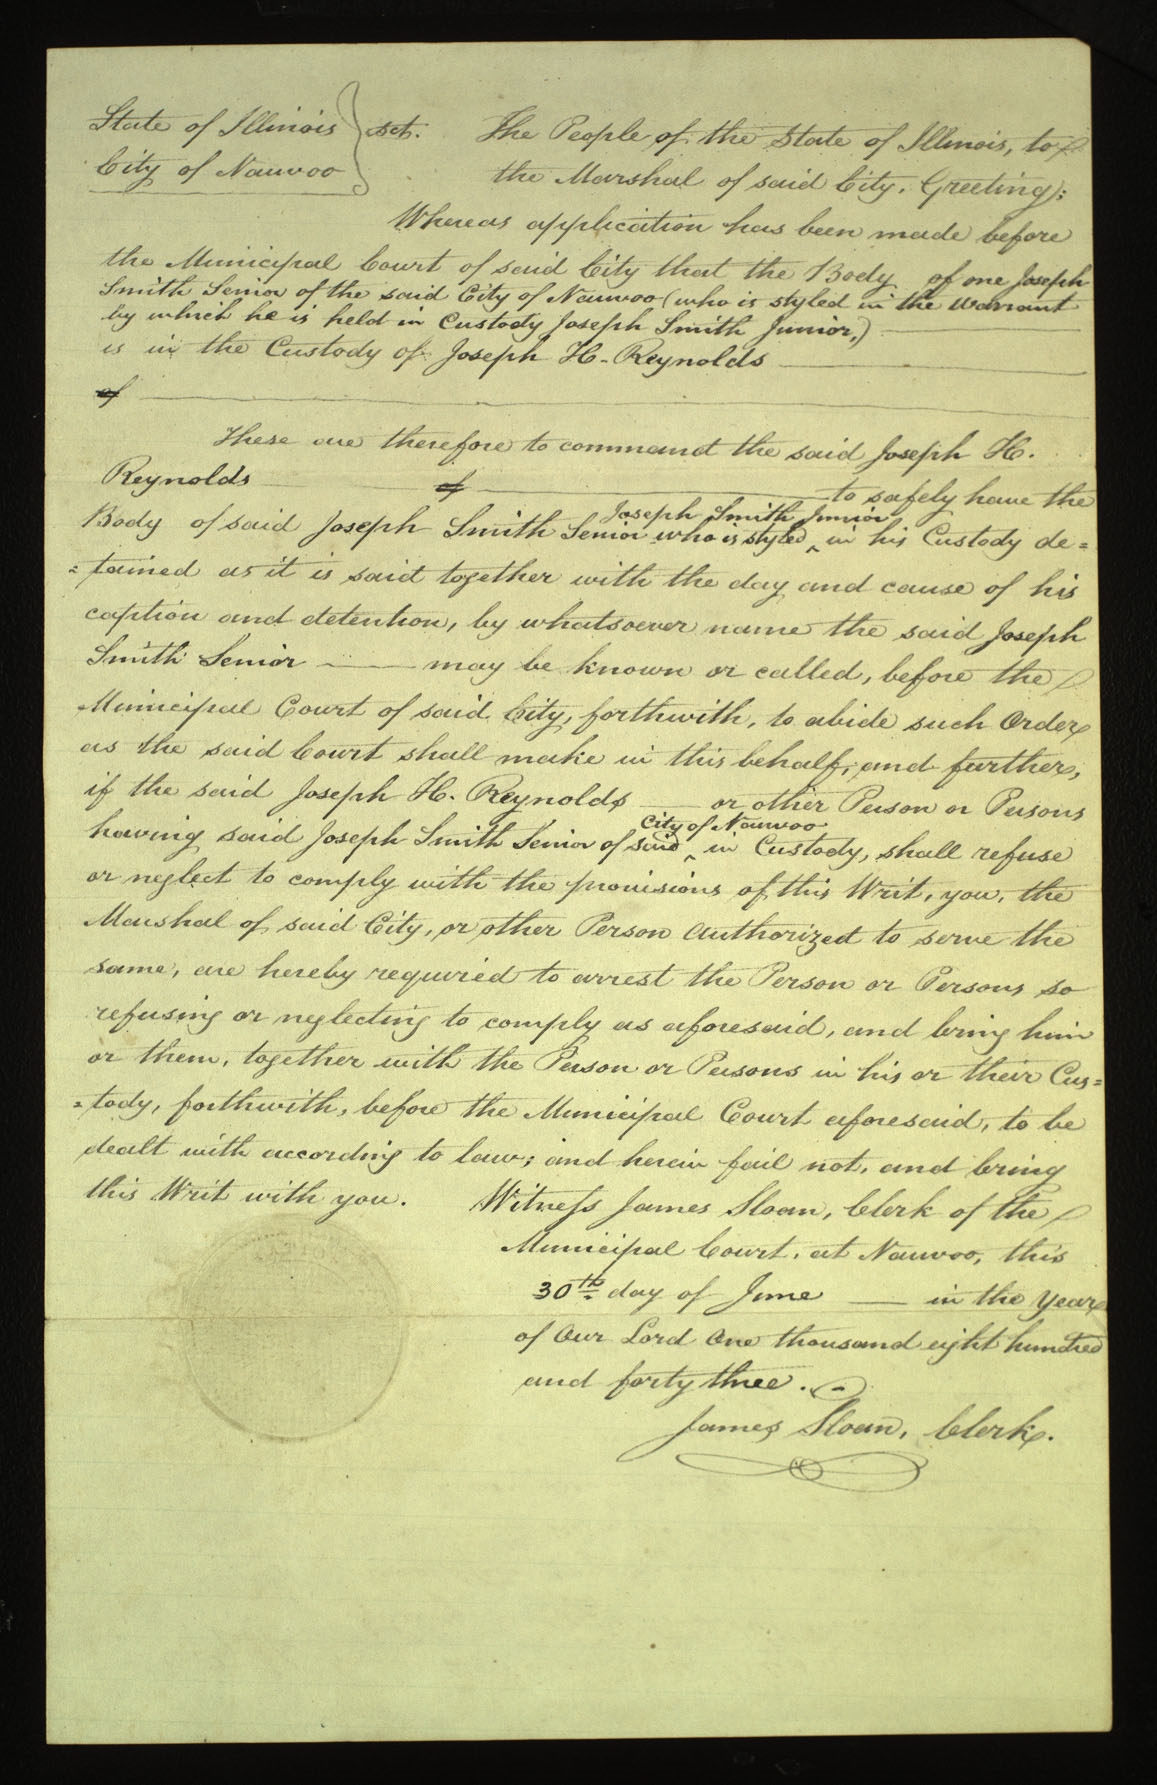 State of Illinois } sct. The People of the State of Illinois, to
City of Nauvoo } the Marshal of said City. Greeting:
Whereas application has been made before
the Municipal Court of said City that the Body of one Joseph
Smith Senior of the said City of Nauvoo (who is styled in the warrant
by which he is held in Custody Joseph Smith Junior,)
is in the Custody of Joseph H. Reynolds
of
These are therefore to command the said Joseph H.
Reynolds of to safely have the
Joseph Smith Junior
Body of said Joseph Smith Senior who is styled ^ in his Custody de=
=tained as it is said together with the day and cause of his
caption and detention, by whatsoever name the said Joseph
Smith Senior may be known or called, before the
Municipal Court of said City, forthwith, to abide such Order
as the said Court shall make in this behalf; and further,
if the said Joseph H. Reynolds or other Person or Persons
City of Nauvoo
having said Joseph Smith Senior of said ^ in Custody, shall refuse
or neglect to comply with the provisions of this Writ, you, the
Marshal of said City, or other Person authorized to serve the
same, are hereby required to arrest the Person or Persons so
refusing or neglecting to comply as aforesaid, and bring him
or them, together with the Person or Persons in his or their Cus=
=tody, forthwith, before the Municipal Court aforesaid, to be
dealt with according to law; and herein fail not, and bring
this Writ with you. Witness James Sloan, Clerk of the
Municipal Court, at Nauvoo, this
30th day of June in the year
of Our Lord One thousand eight hundred
and forty three.
James Sloan, Clerk.